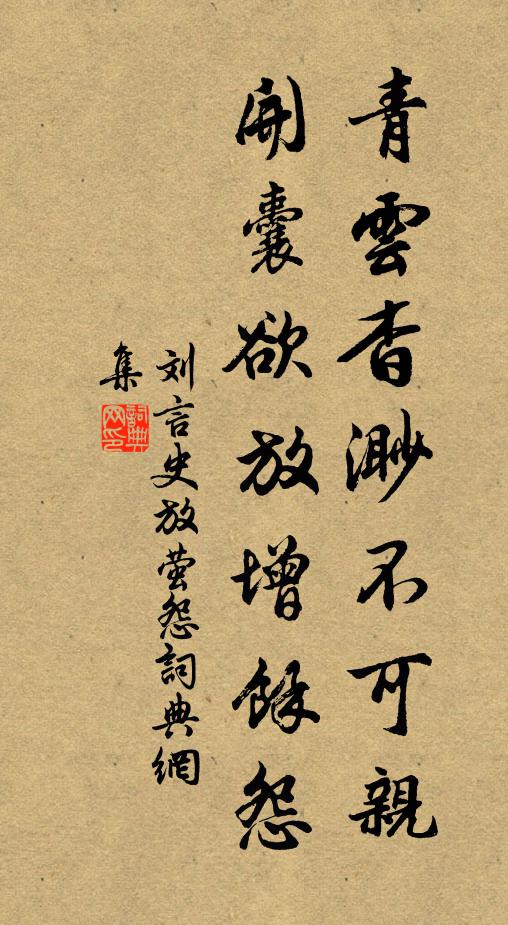 青雲杳渺不可親
開囊欲放增餘怨
刘言史放萤怨詞典網
集
詞典网印